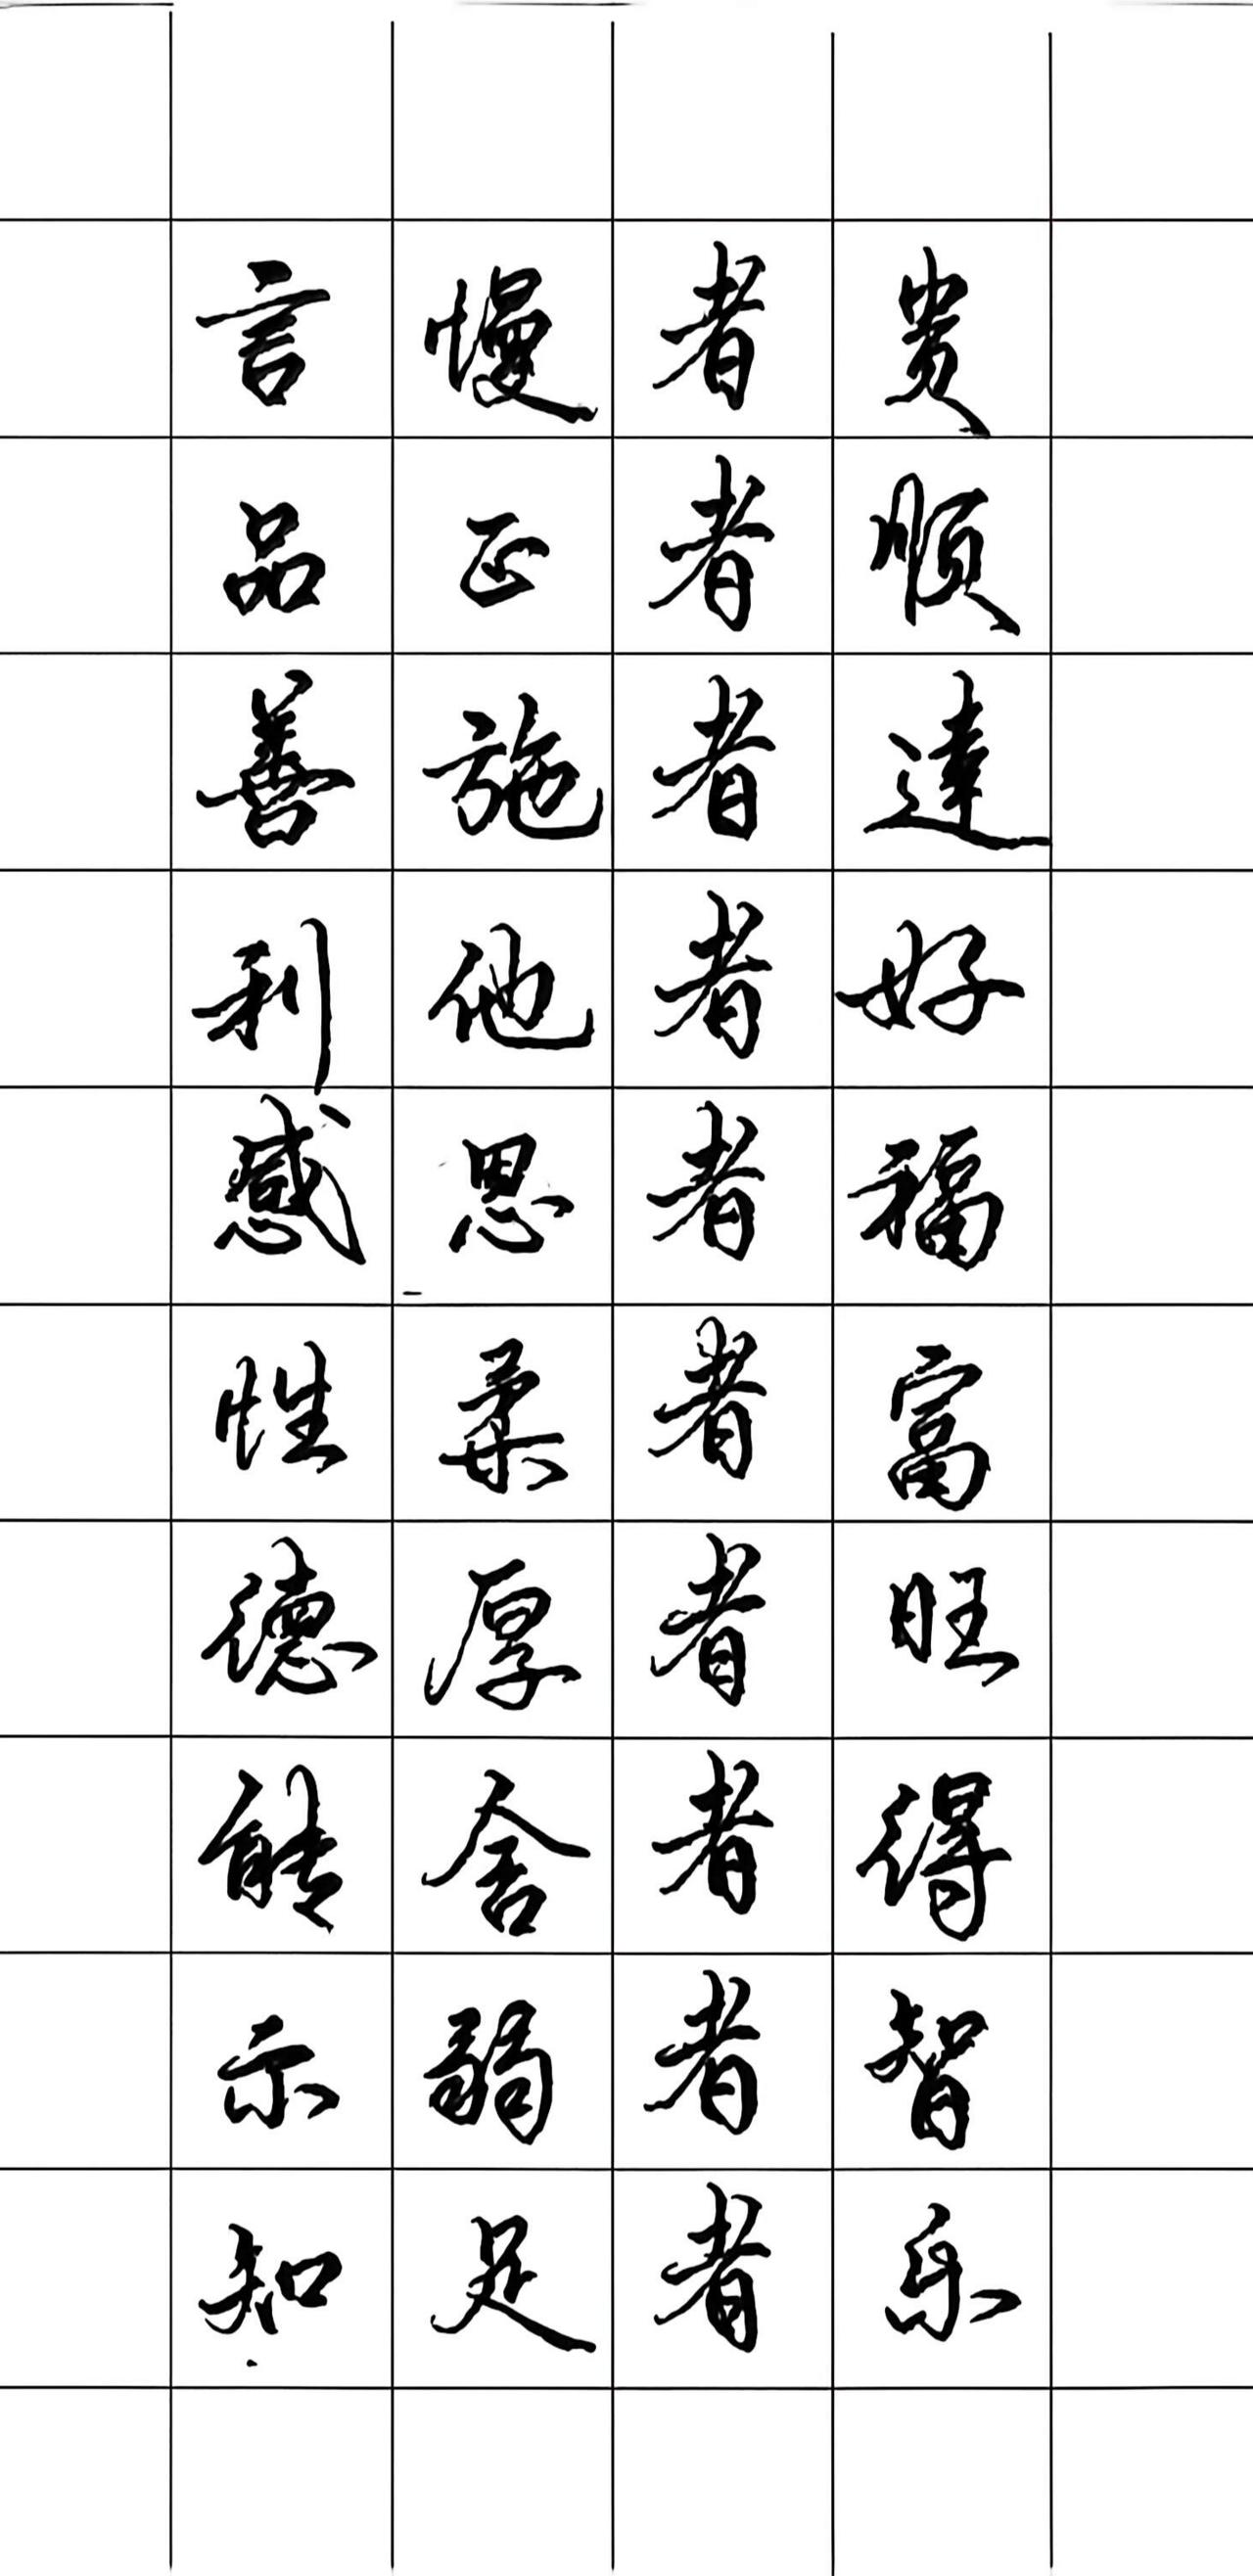 言慢者贵
品正者順
善施者達
利他者好
感恩者福
性柔者富
德厚者旺
能舍者得
示弱者智
知足者乐